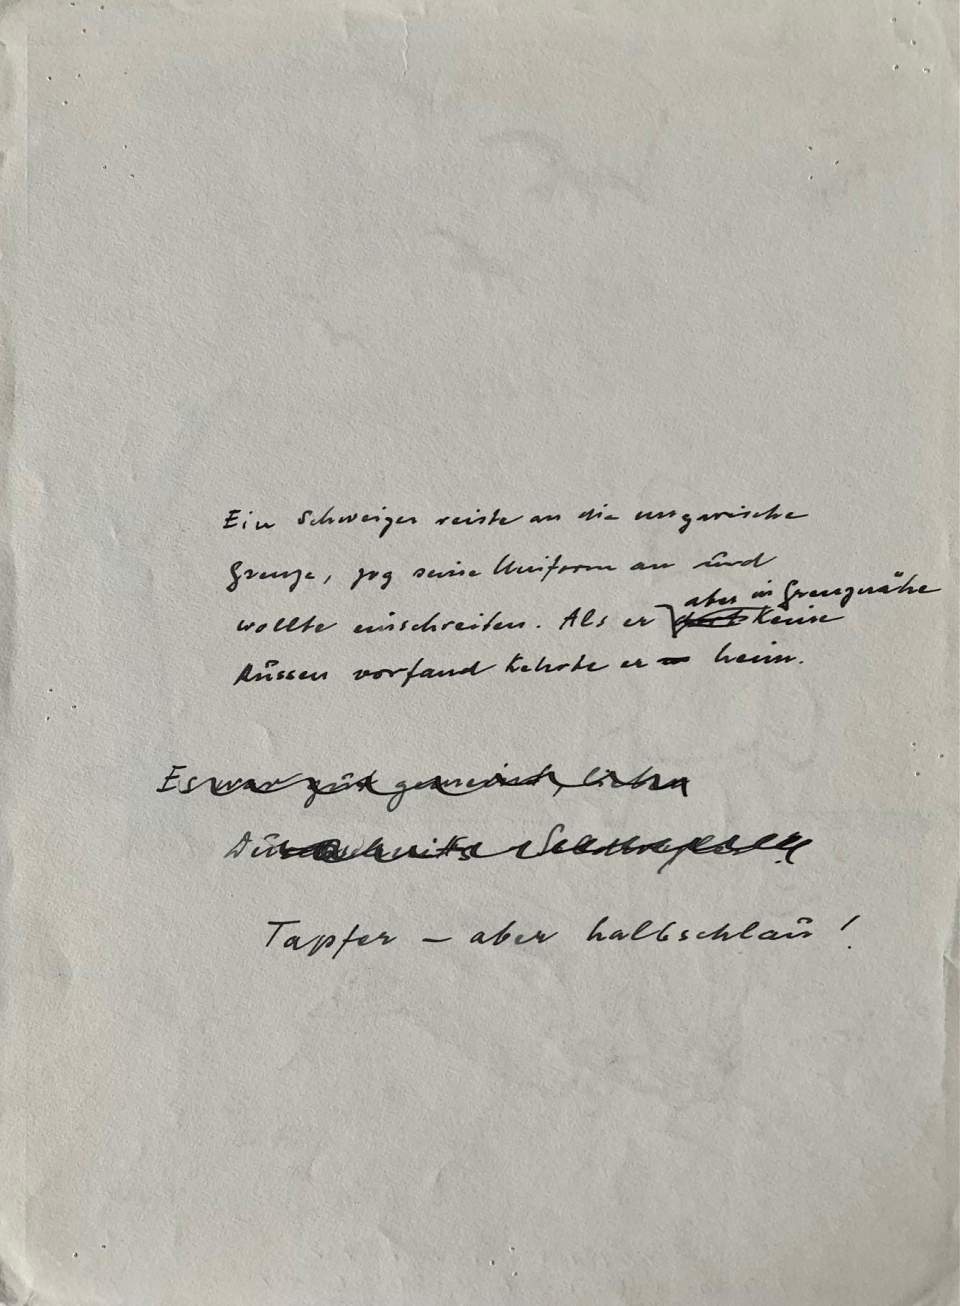 Ein Schweizer reiste an die ungarische
Grenze, zog seine Uniform an und
wollte einschreiten. Als er aber in Grenznähe keine
Russen vorfand kehrte er heim.
Es war gut gemeint, lieber
Tapfer – aber halbschlau!